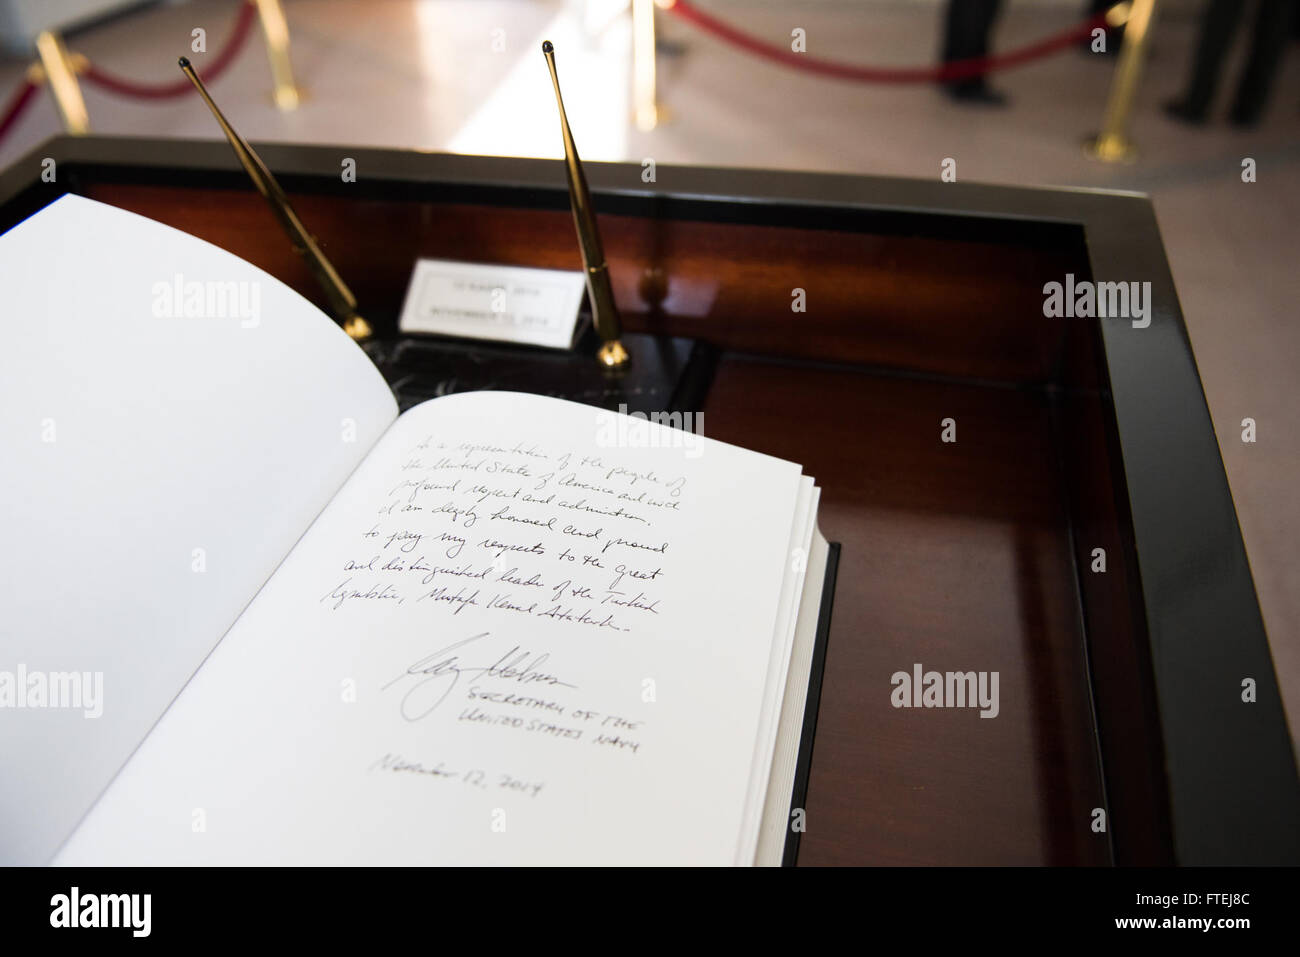 12 KASIM 2014
NOVEMBER 12, 2014
As a representative of the people of
the United States of America and with
profound respect and admiration,
I am deeply honored and proud
to pay my respects to the great
and distinguished leader of the Turkish
Republic, Mustafa Kemal Ataturk.
SECRETARY OF THE
UNITED STATES NAVY
November 12, 2014
alamy
Image ID: FTEJ8C
www.alamy.com